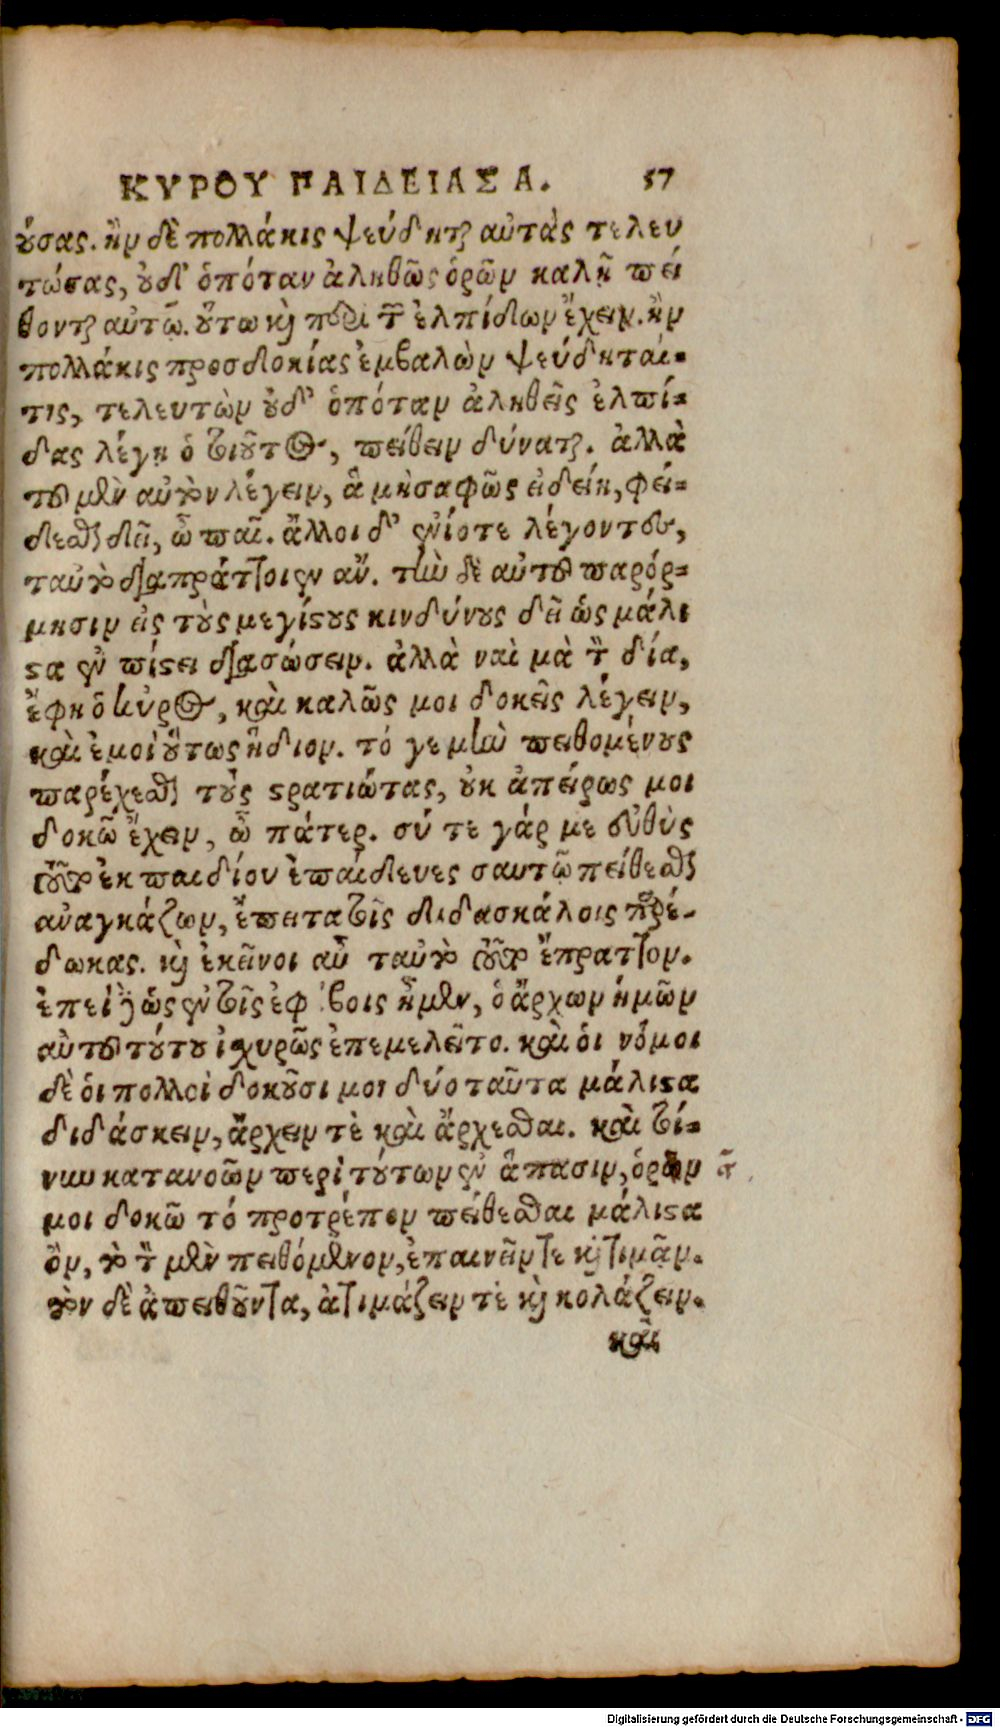 ΚΥΡΟΥ ΠΑΙΔΕΙΑΣ Α. 57
ούσας. ἢν δὲ πολλάκις ψεύδηται αὐτὰς τελευ
τώσας, οὐδ' ὁπόταν ἀληθῶς ὁρῶν καλῇ πεί
θονται αὐτῷ. οὕτω καὶ περὶ τῶν ἐλπίδων ἔχειν. ἢν
πολλάκις προσδοκίας ἐμβαλὼν ψεύδηταί-
τις, τελευτῶν οὐδ' ὁπόταν ἀληθεῖς ἐλπί-
δας λέγῃ ὁ τοιοῦτος, πείθειν δύναται. ἀλλὰ
τοῦ μὲν αὐτὸν λέγειν, ἃ μὴ σαφῶς εἰδείη, φεί-
δεσθαι δεῖ, ὦ παῖ. ἄλλοι δ' ἐνίοτε λέγοντες,
ταὐτὸ διαπράττοιεν ἄν. τὴν δὲ αὐτοῦ παρόρ-
μησιν εἰς τοὺς μεγίστους κινδύνους δεῖ ὡς μάλι
στα ἐν πίστει διασώσειν. ἀλλὰ ναὶ μὰ τὸν δία,
ἔφη ὁ κύρος, καὶ καλῶς μοι δοκεῖς λέγειν,
καὶ ἐμοὶ οὕτως ἥδιον. τό γε μὴν πειθομένους
παρέχεσθαι τοὺς στρατιώτας, οὐκ ἀπείρως μοι
δοκῶ ἔχειν, ὦ πάτερ. σύ τε γάρ με εὐθὺς
τοῦτο ἐκ παιδίου ἐπαίδευες σαυτῷ πείθεσθαι
ἀναγκάζων, ἔπειτα τοῖς διδασκάλοις παρέ-
δωκας. καὶ ἐκεῖνοι αὖ ταὐτὸ τοῦτο ἔπραττον.
ἐπεὶ δ' ὡς ἐν τοῖς ἐφήβοις ἦμεν, ὁ ἄρχων ἡμῶν
αὐτοῦ τούτου ἰσχυρῶς ἐπεμελεῖτο. καὶ οἱ νόμοι
δὲ οἱ πολλοὶ δοκοῦσί μοι δύο ταῦτα μάλιστα
διδάσκειν, ἄρχειν τὲ καὶ ἄρχεσθαι. καὶ τοί-
νυν κατανοῶν περὶ τούτων ἐν ἅπασιν, ὁρᾶν
μοι δοκῶ τό προτρέπον πείθεσθαι μάλιστα
ὂν, τὸ τὸν μὲν πειθόμενον, ἐπαινεῖν τε καὶ τιμᾶν.
τὸν δὲ ἀπειθοῦντα, ἀτιμάζειν τὲ καὶ κολάζειν.
καὶ
Digitalisierung gefördert durch die Deutsche Forschungsgemeinschaft - DFG